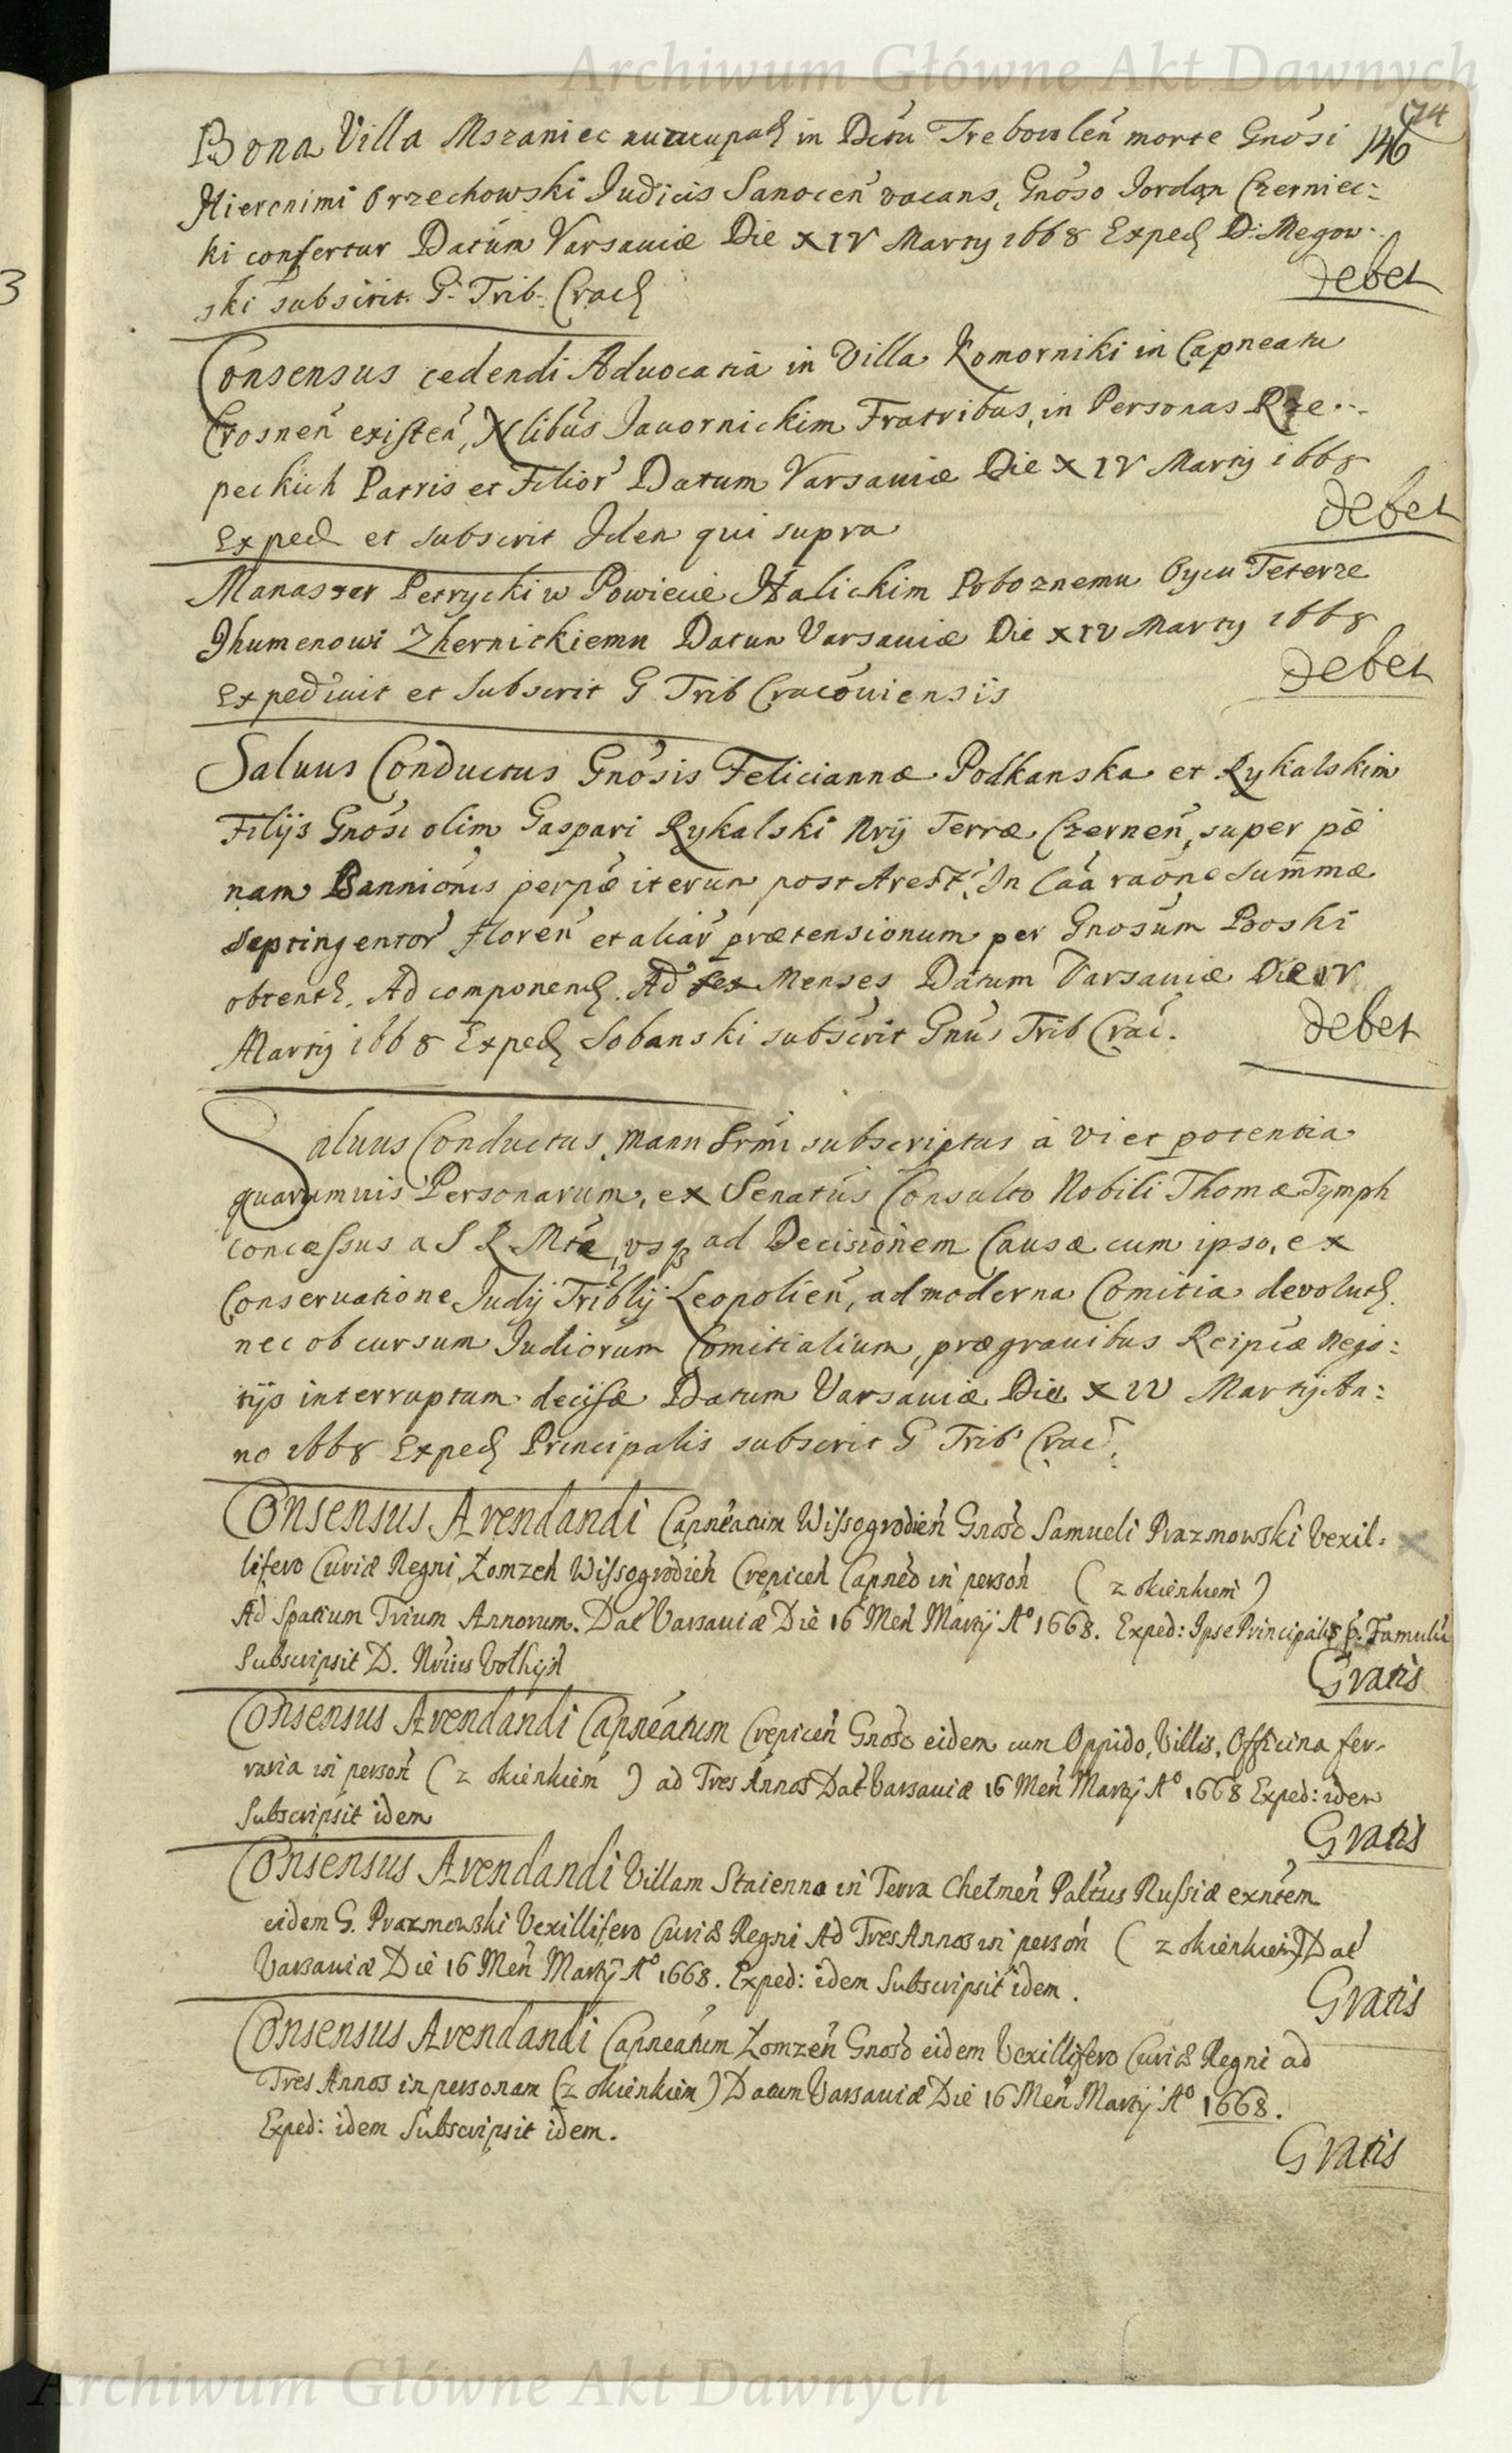 Archiwum Główne Akt Dawnych
74
146
Bona Villa Mszaniec nuncupat in Dctu Trebowleń morte Gnosi
Hieronimi Orzechowski Judicis Sanoceń vacans, Gnoso Jordan Czerniec:
ki confertur Datum Varsaviæ Die XIV Martij 1668 Exped D: Megow
ski subscrit. G. Trib. Crac
debet
3
Consensus cedendi Advocatia in Villa Komorniki in Capneatu
Crosneń existeń, Nlibus Jawornickim Fratribus, in Personas Rze
peckich Patris et Filior Datum Varsaviæ Die XIV Martij 1668
Exped et subscrit Idem qui supra
debet
Manaster Petrycki w Powiecie Halickim Poboznemu Oycu Teterze
Ihumenowi Zhernickiemu Datum Varsaviæ Die XIV Martij 1668
Expedivit et Subscrit G Trib Cracoviensis
debet
Salvus Conductus Gnosis Feliciannæ Podkanska et Rykalskim
Filijs Gnosi olim Gaspari Rykalski Nrij Terræ Czerneń, super pæ
nam Bannionis perpæ iterum post Arest: In Caa raone Summæ
septingentor floren et aliar prætensionum per Gnosum Boski
obtent. Ad componend. Ad sex Menses Datum Varsaviæ Die XV
Martij 1668 Exped Sobanski subscrit Gnus Trib Crac.
debet
Salvus Conductus, Manu Srmi subscriptus à vi et potentia
quarumvis Personarum, ex Senatus Consulto Nobili Thomæ Tymph
concessus a S R Mte, usq ad Decisionem Causæ cum ipso, ex
Conservatione Judij Triblij Leopolień, ad moderna Comitia devolut.
nec ob cursum Judiorum Comitialium, prægravibus Reipcæ Nego:
tijs interruptum decisæ Datum Varsaviæ Die XIV Martij An:
no 1668 Exped Principalis subscrit G Trib Crac.
Consensus Arendandi Capneatum Wissogrodień Gnoso Samueli Prazmowski Vexil:
lifero Curiæ Regni, Łomzeń Wissogrodień Crepiceń Capneo in person ( z okienkiem )
Ad Spatium Trium Annorum. Dat Varsaviæ Die 16 Men Martij A° 1668. Exped: Ipse Principalis p. Famulu
Subscripsit D. Nrius Volhyń
Gratis
Consensus Arendandi Capneatum Crepiceń Gnoso eidem cum Oppido, Villis, Officina fer-
raria in person ( z okienkiem ) ad Tres Annos Dat Varsaviæ 16 Men Martij A° 1668 Exped: idem
Subscripsit idem
Gratis
Consensus Arendandi Villam Staienna in Terra Chelmeń Paltus Russiæ exntem
eidem G. Prazmowski Vexillifero Curiæ Regni Ad Tres Annos in person ( z okienkiem) Dat
Varsaviæ Die 16 Men Martij A° 1668. Exped: idem Subscripsit idem.
Gratis
Consensus Arendandi Capneatum Łomzeń Gnoso eidem Vexillifero Curiæ Regni ad
Tres Annos in personam (z okienkiem) Datum Varsaviæ Die 16 Men Martij A° 1668.
Exped: idem Subscripsit idem.
Gratis
Archiwum Główne Akt Dawnych